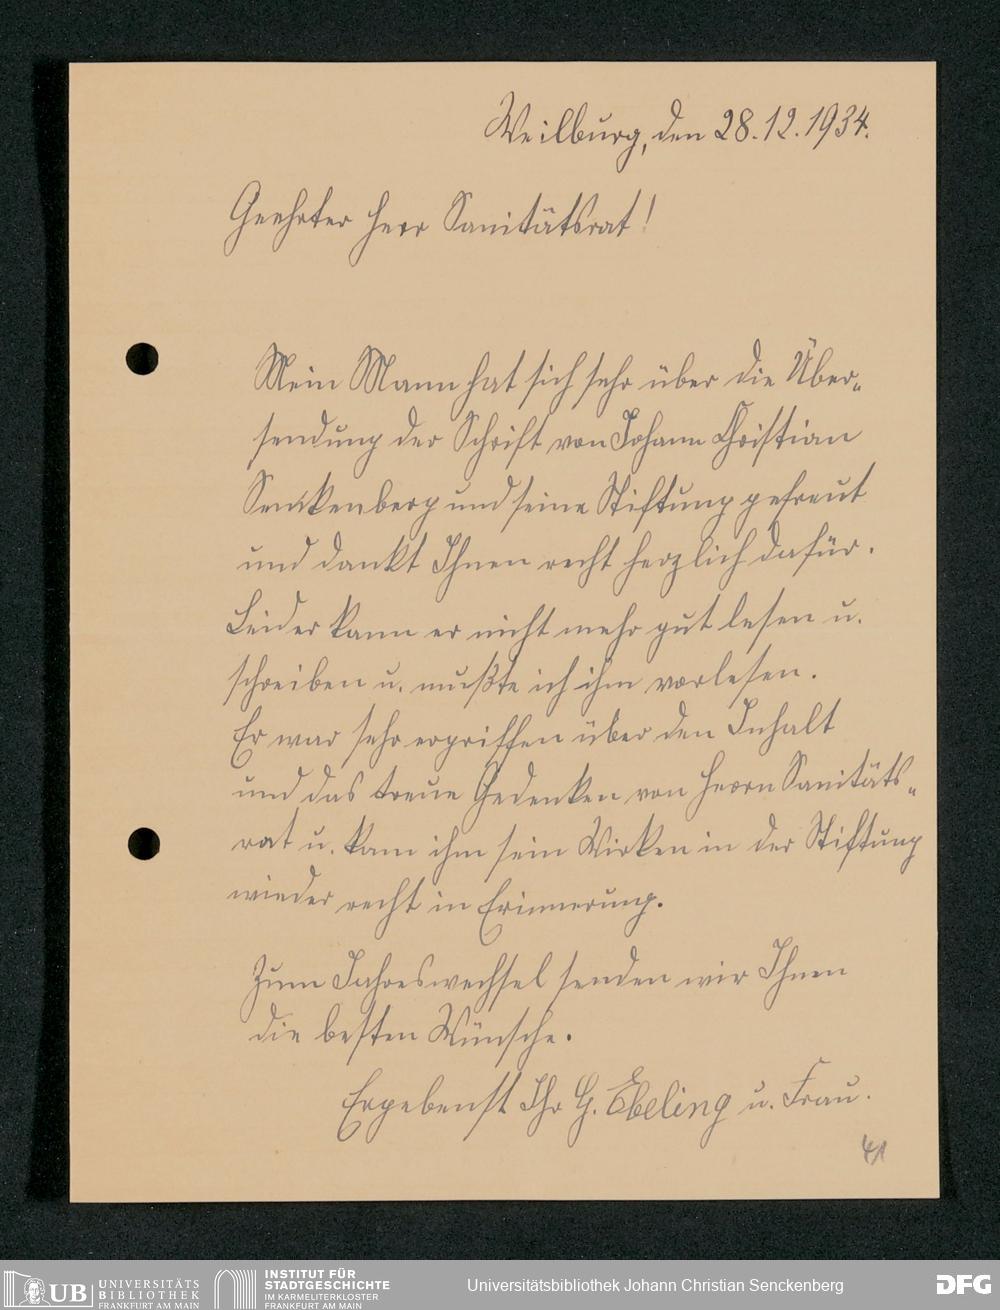 Weilburg, den 28.12.1934.
Geehrter Herr Sanitätsrat!
Mein Mann hat sich sehr über die Über-
sendung der Schrift von Johann Christian
Senckenberg und seine Stiftung gefreut
und dankt Ihnen recht herzlich dafür.
Leider kann er nicht mehr gut lesen u.
schreiben u. mußte ich ihm vorlesen.
Er war sehr ergriffen über den Inhalt
und das treue Gedenken von Herrn Sanitäts-
rat u. kam ihm sein Wirken in der Stiftung
wieder recht in Erinnerung.
Zum Jahreswechsel senden wir Ihnen
die besten Wünsche.
Ergebenst Ihr G. Ebeling u. Frau.
41
UB UNIVERSITÄTS
BIBLIOTHEK
FRANKFURT AM MAIN
INSTITUT FÜR
STADTGESCHICHTE
IM KARMELITERKLOSTER
FRANKFURT AM MAIN
Universitätsbibliothek Johann Christian Senckenberg
DFG